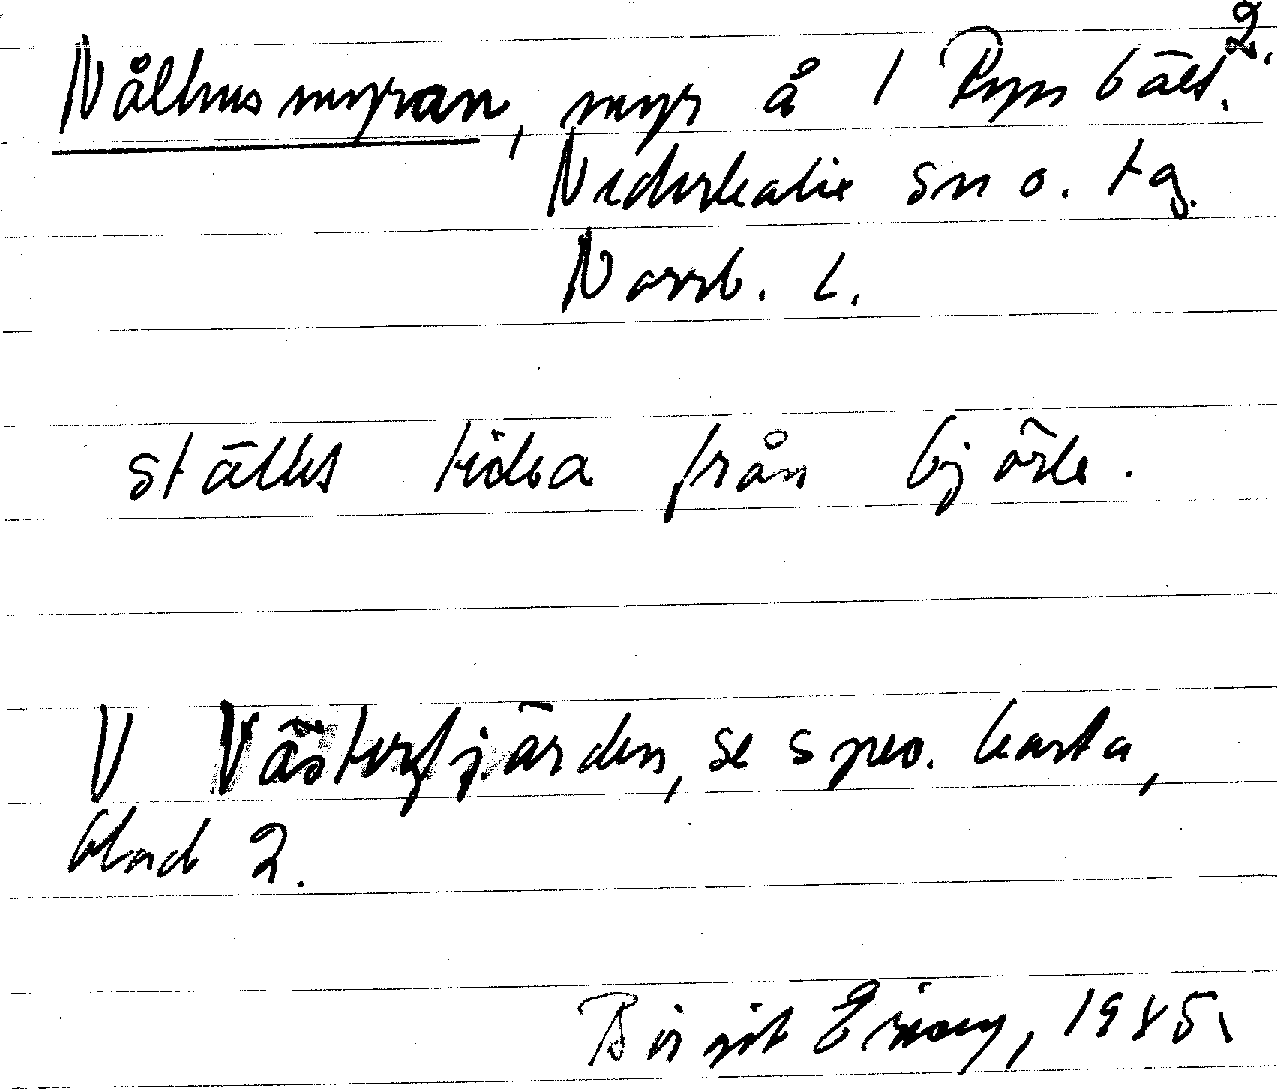 2.
Nålhusmyran, myr å 1 Ryss bält.
Nederkalix sn o. tg.
Norrb. l.
ställes tidea från björk.
V Västerfjärden, se spec. karta,
blad 2.
Birgit Eriang, 1985.